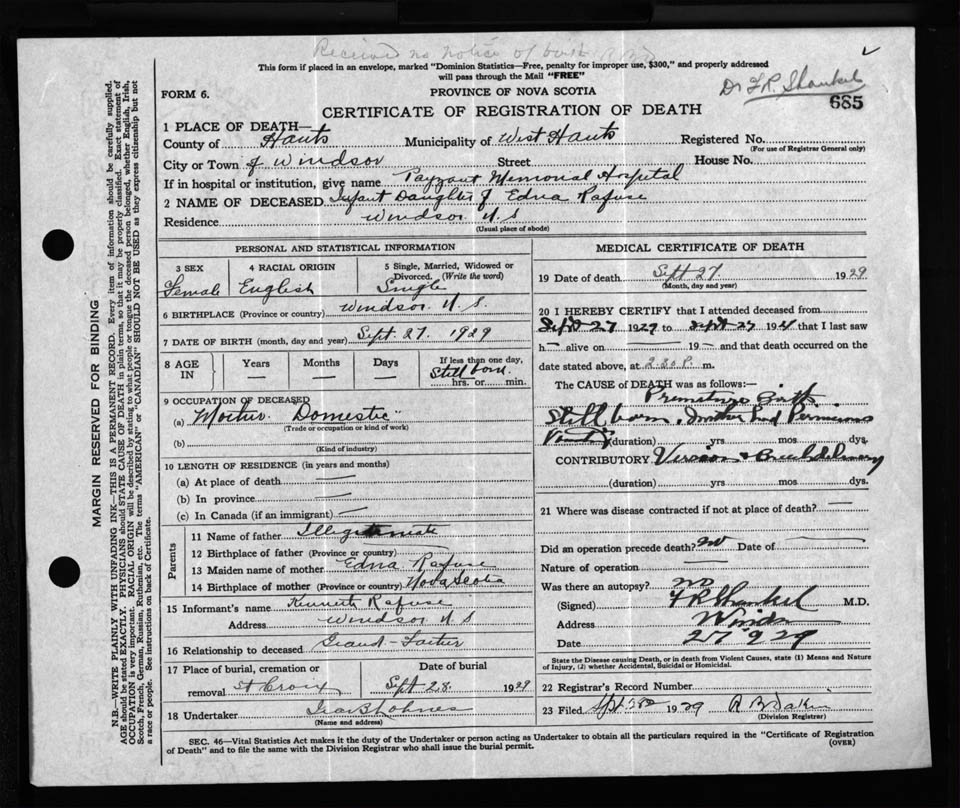 Received no notice of birth
This form if placed in an envelope, marked "Dominion Statistics—Free, penalty for improper use, $300," and properly addressed
will pass through the Mail "FREE"
Dr F.R. Shankel
FORM 6.
PROVINCE OF NOVA SCOTIA
685
CERTIFICATE OF REGISTRATION OF DEATH
1 PLACE OF DEATH—
County of Hants Municipality of West Hants Registered No.
(For use of Registrar General only)
City or Town of Windsor Street House No.
If in hospital or institution, give name Payzant Memorial Hospital
2 NAME OF DECEASED Infant Daughter of Edna Rafuse
Residence Windsor N.S
(Usual place of abode)
PERSONAL AND STATISTICAL INFORMATION
3 SEX Female
4 RACIAL ORIGIN English
5 Single, Married, Widowed or Divorced. (Write the word) Single
6 BIRTHPLACE (Province or country) Windsor. N.S.
7 DATE OF BIRTH (month, day and year) Sept. 27. 1929
8 AGE IN Years Months Days If less than one day, Still born. hrs. or min.
9 OCCUPATION OF DECEASED
(a) Mother Domestic"
(Trade or occupation or kind of work)
(b)
(Kind of industry)
10 LENGTH OF RESIDENCE (in years and months)
(a) At place of death —
(b) In province —
(c) In Canada (if an immigrant) —
Parents
11 Name of father Illegitimate
12 Birthplace of father (Province or country) —
13 Maiden name of mother Edna Rafuse
14 Birthplace of mother (Province or country) Nova Scotia
15 Informant's name Kenneth Rafuse
Address Windsor N S
16 Relationship to deceased Grand-Father
17 Place of burial, cremation or removal St Croix
Date of burial Sept 28. 1929
18 Undertaker
(Name and address)
MEDICAL CERTIFICATE OF DEATH
19 Date of death Sept 27. 1929
(Month, day and year)
20 I HEREBY CERTIFY that I attended deceased from
Sept 27 1929 to Sept 27 19 that I last saw
h— alive on — 19— and that death occurred on the
date stated above, at 2.30 P. m.
The CAUSE of DEATH was as follows:—
Premature Birth
Still born, Mother had Pernicious
(duration) yrs mos dys.
CONTRIBUTORY Version & Breech delivery
(duration) yrs mos dys.
21 Where was disease contracted if not at place of death? —
Did an operation precede death? no Date of —
Nature of operation —
Was there an autopsy? no
(Signed) F R Shankel M.D.
Address Windsor
Date 27 9 29
State the Disease causing Death, or in death from Violent Causes, state (1) Means and Nature
of Injury, (2) whether Accidental, Suicidal or Homicidal.
22 Registrar's Record Number
23 Filed Sept 28 1929 A B Dakin
(Division Registrar)
SEC. 46—Vital Statistics Act makes it the duty of the Undertaker or person acting as Undertaker to obtain all the particulars required in the "Certificate of Registration
of Death" and to file the same with the Division Registrar who shall issue the burial permit.
(OVER)
MARGIN RESERVED FOR BINDING
N.B.—WRITE PLAINLY WITH UNFADING INK—THIS IS A PERMANENT RECORD. Every item of information should be carefully supplied.
AGE should be stated EXACTLY. PHYSICIANS should STATE CAUSE OF DEATH in plain terms, so that it may be properly classified. Exact statement of
OCCUPATION is very important. RACIAL ORIGIN will be described by stating to what people or tongue the deceased person belonged, whether English, Irish,
Scotch, French, German, Russian, Ruthenian, etc. The terms "AMERICAN" or "CANADIAN" SHOULD NOT BE USED as they express citizenship but not
a race or people. See instructions on back of Certificate.